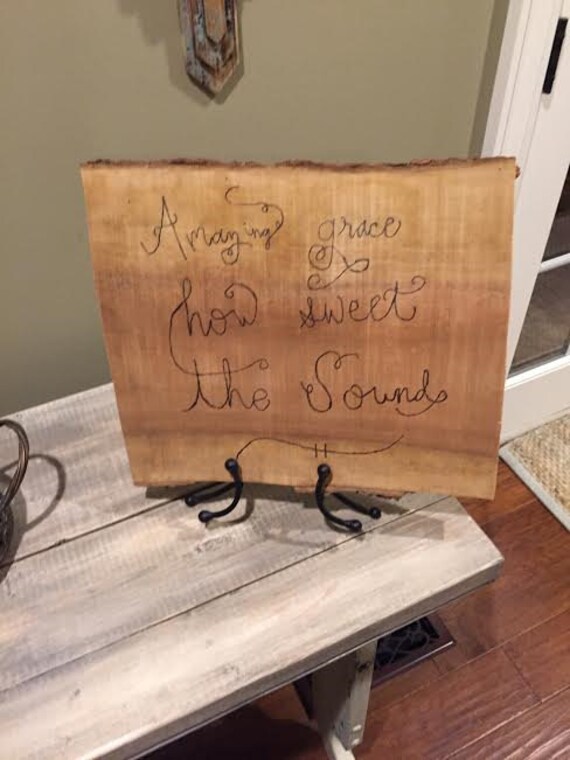 Amazing grace
how sweet
the Sound